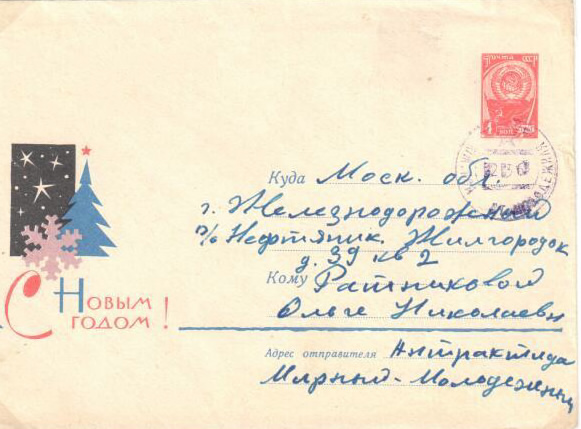 почта СССР
4
Куда Моск. обл.
г. Железнодорожный
п/о Нефтяник Жилгородок
д. 39 кв 2
Кому Ратниковой
Ольге Николаевн
С Новым
годом!
Адрес отправителя Антрактида
Мирный-Молодежный